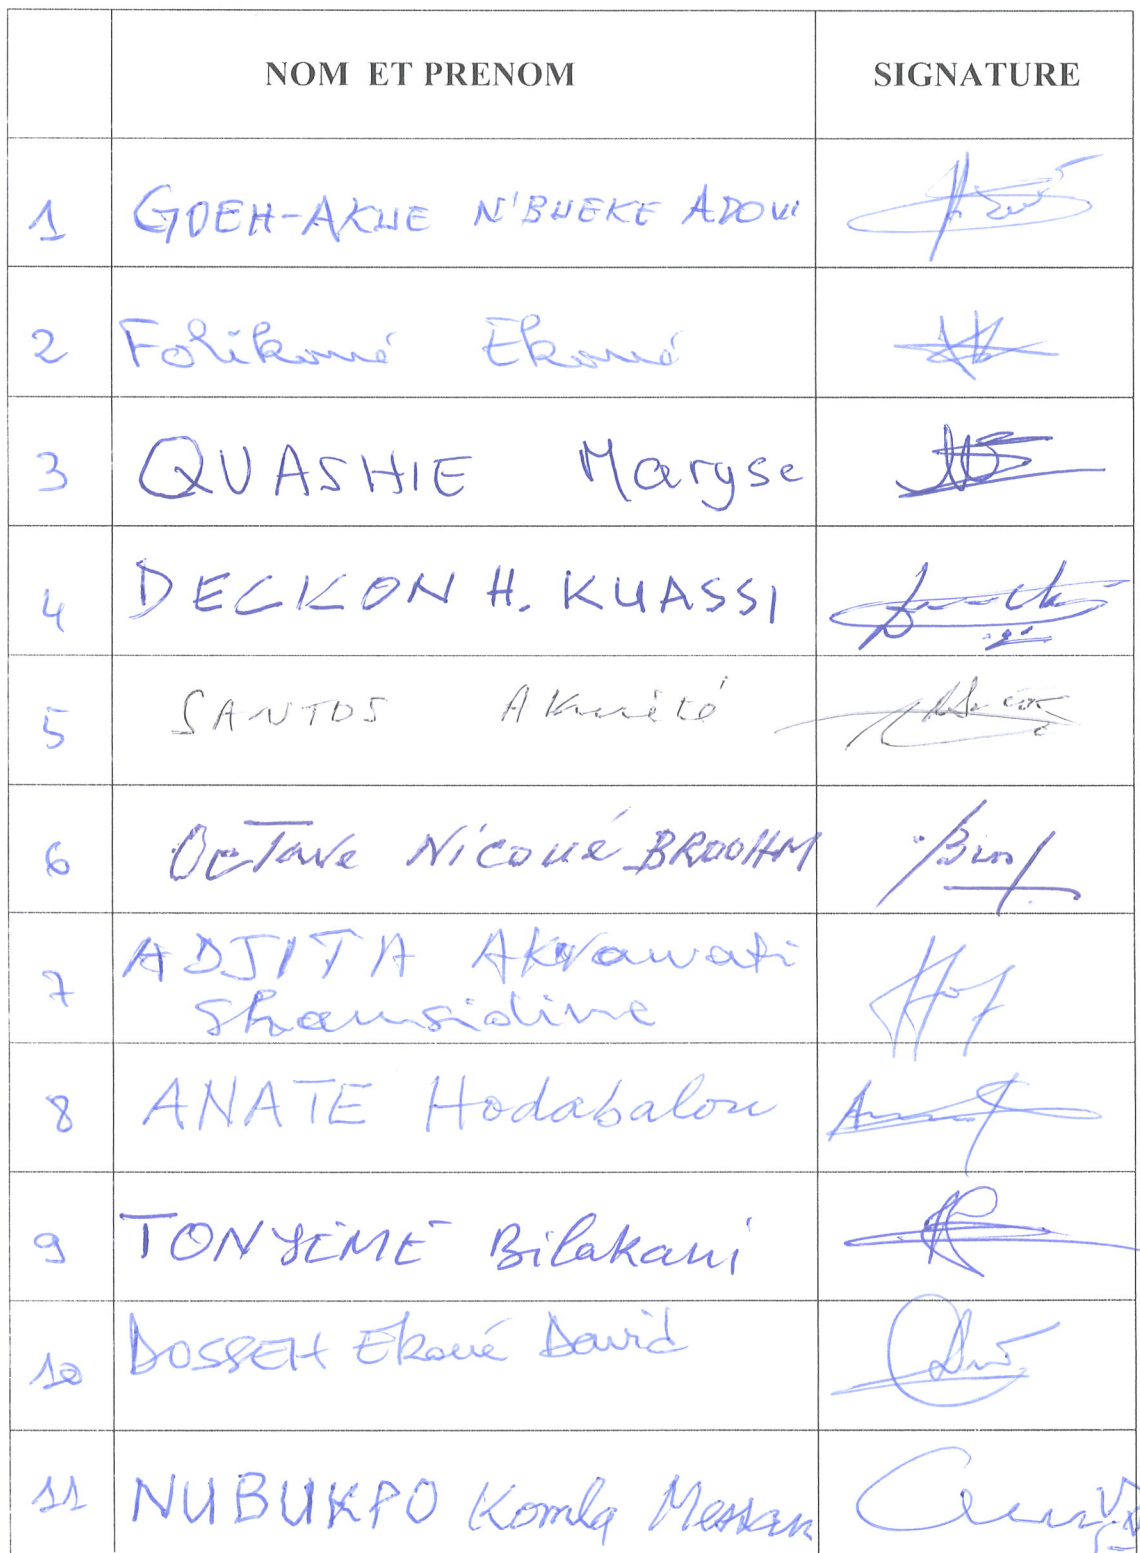 NOM ET PRENOM SIGNATURE
1 GOEH-AKUE N'BUEKE ADOVI
2 Folikoué Ekoué
3 QUASHIE Maryse
4 DECKON H. KUASSI
5 SANTOS Akuété
6 Octave Nicoué BROOHM
7 ADJITA Akrawati
Shamsidine
8 ANATE Hodabalou
9 TONYEME Bilakani
10 DOSSEH Ekoué David
11 NUBUKPO Komla Messan